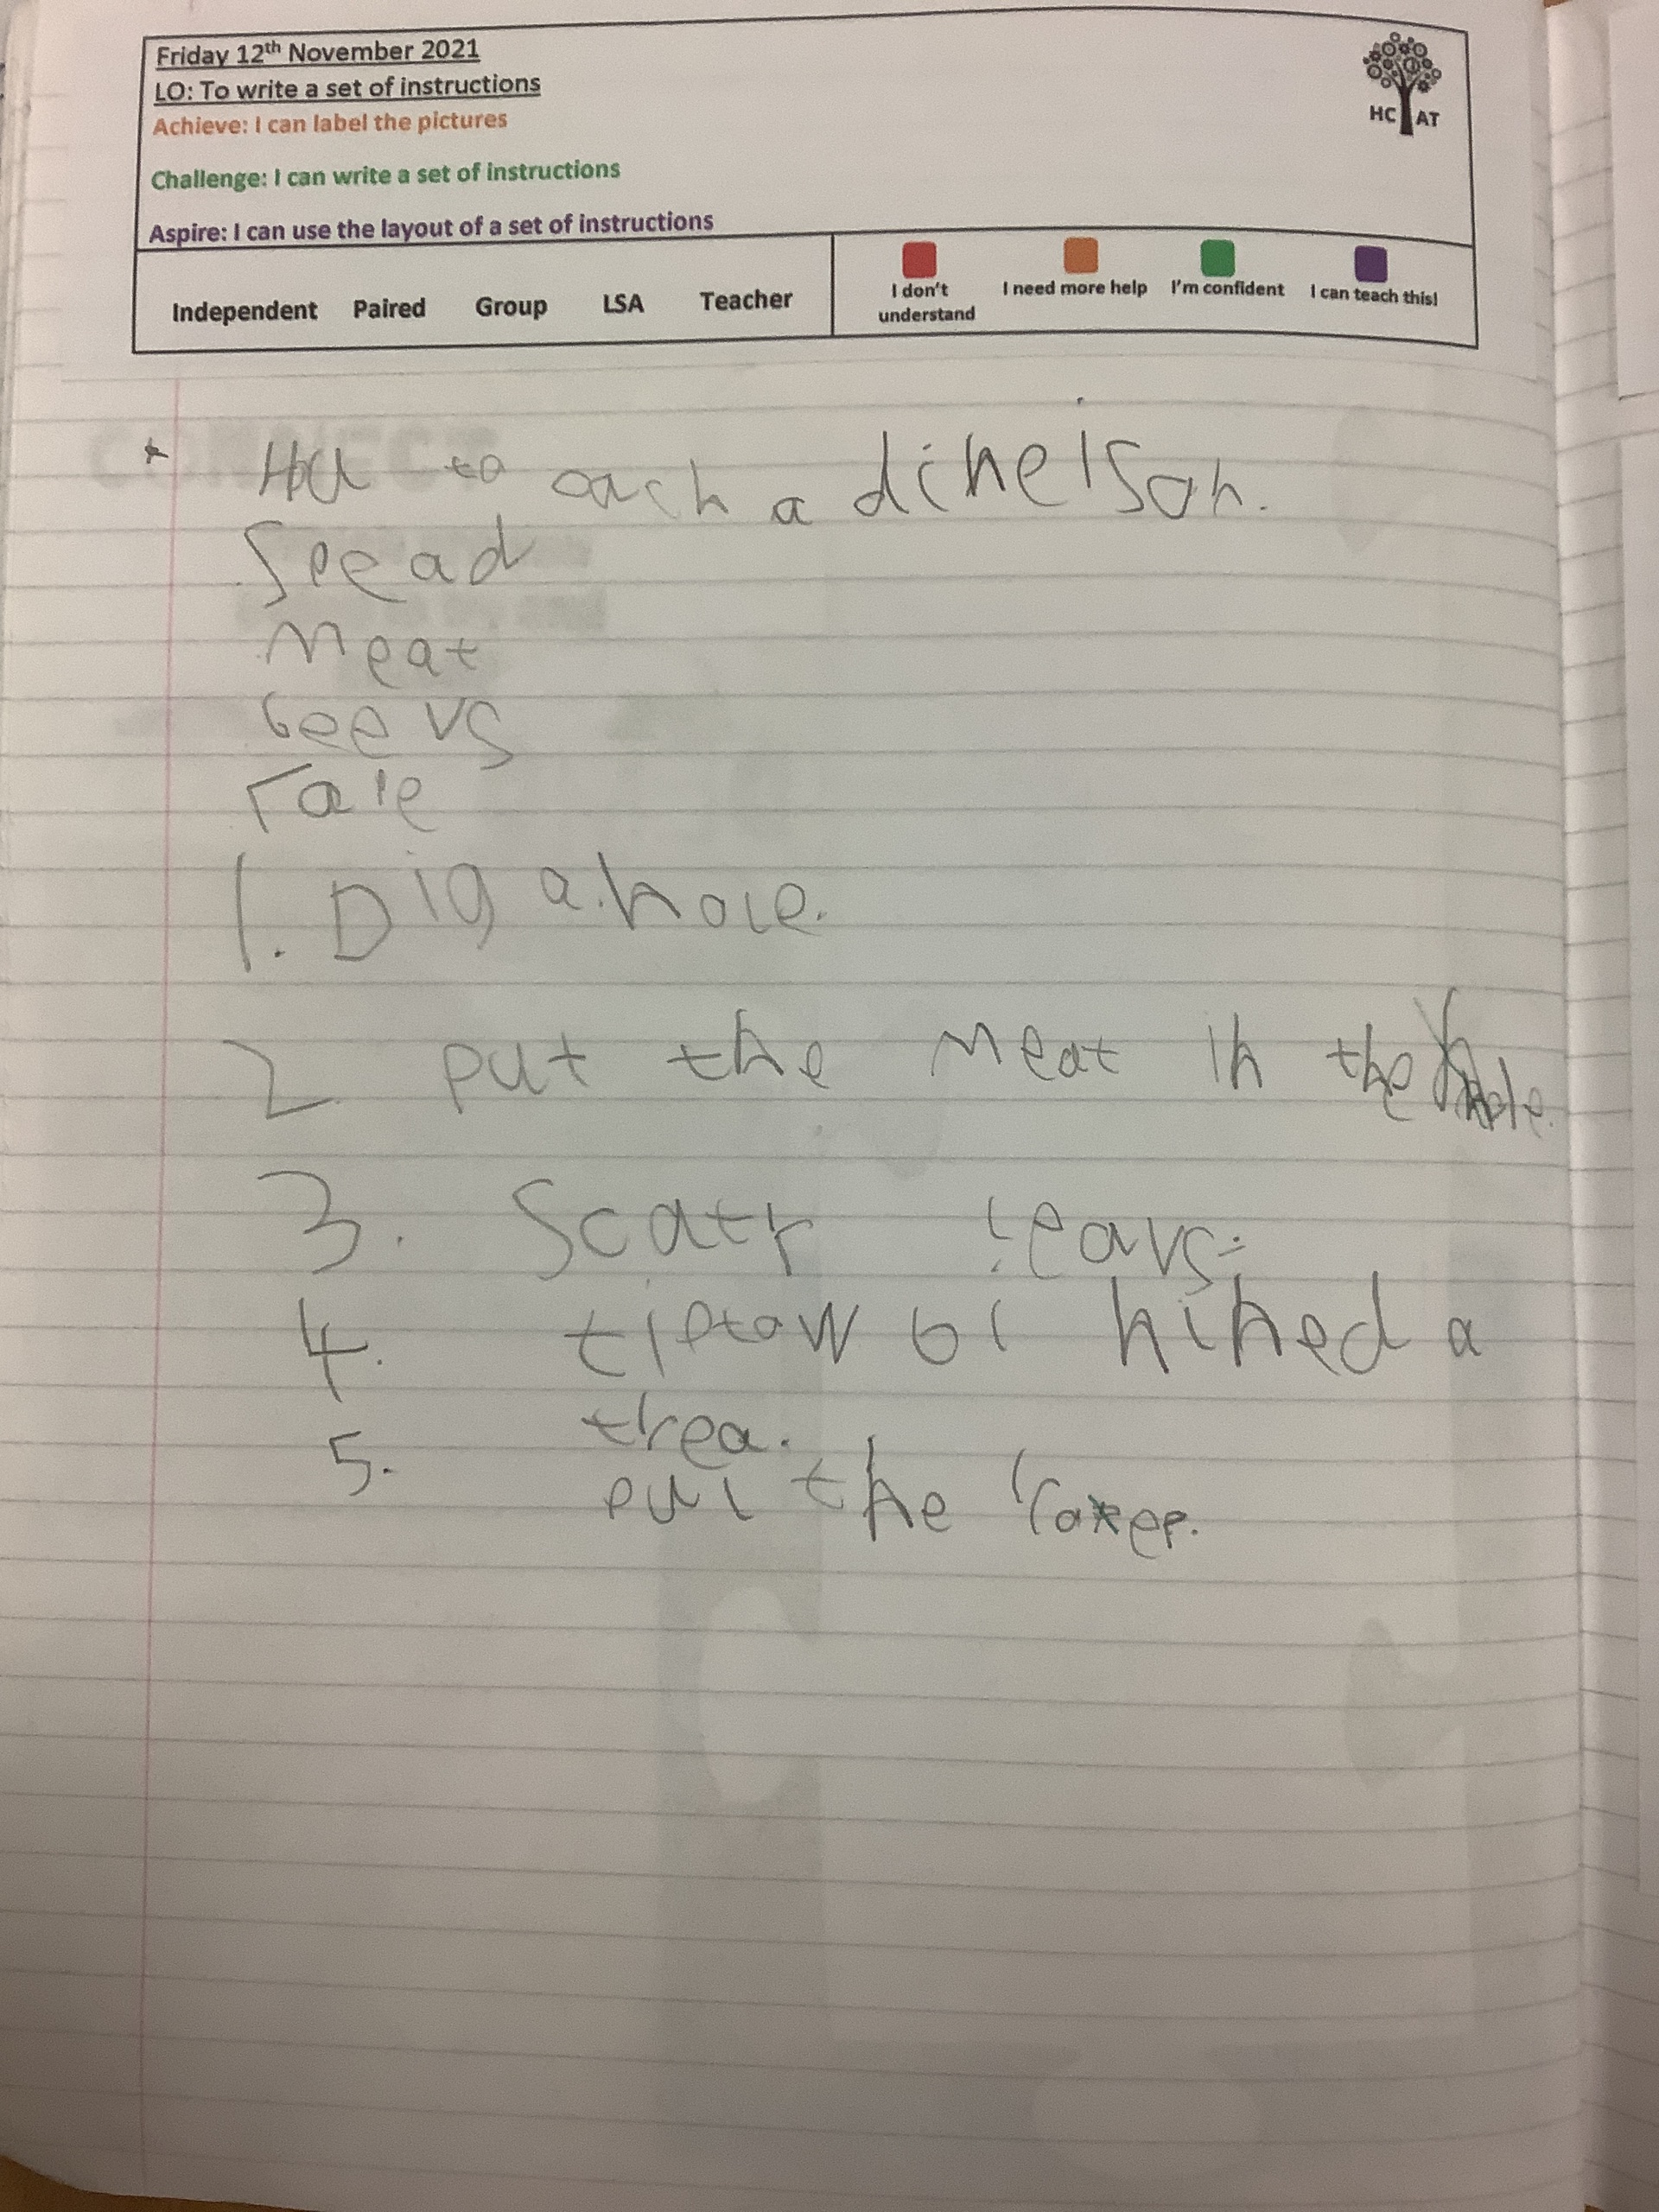 Friday 12th November 2021
LO: To write a set of instructions
Achieve: I can label the pictures
Challenge: I can write a set of instructions
Aspire: I can use the layout of a set of instructions
HC AT
Independent Paired Group LSA Teacher
I don't understand
I need more help
I'm confident
I can teach this!
to a
Spead
Meat
leevs
1. Dig a hole.
2 put the Meat in the hole.
3. Scatr leavs.
4. tiptow bi hined a
trea.
5. pul the